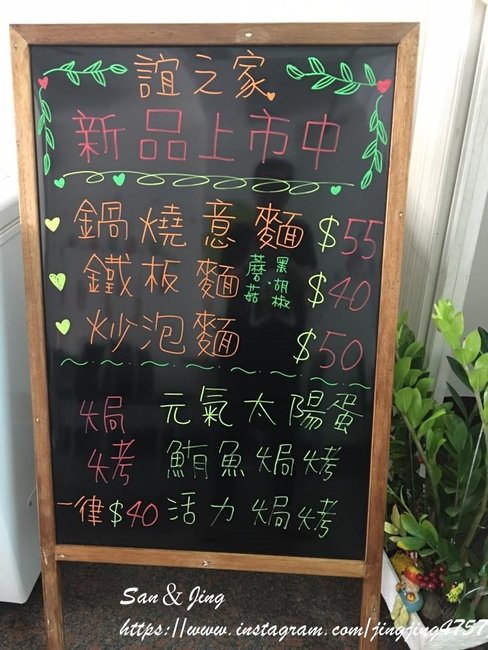 誼之家
新品上市中
鍋燒意麵 $55
鐵板麵 蘑菇 黑胡椒 $40
炒泡麵 $50
焗烤 元氣太陽蛋
鮪魚焗烤
一律$40 活力焗烤
San & Jing
https://www.instagram.com/jingjing4757